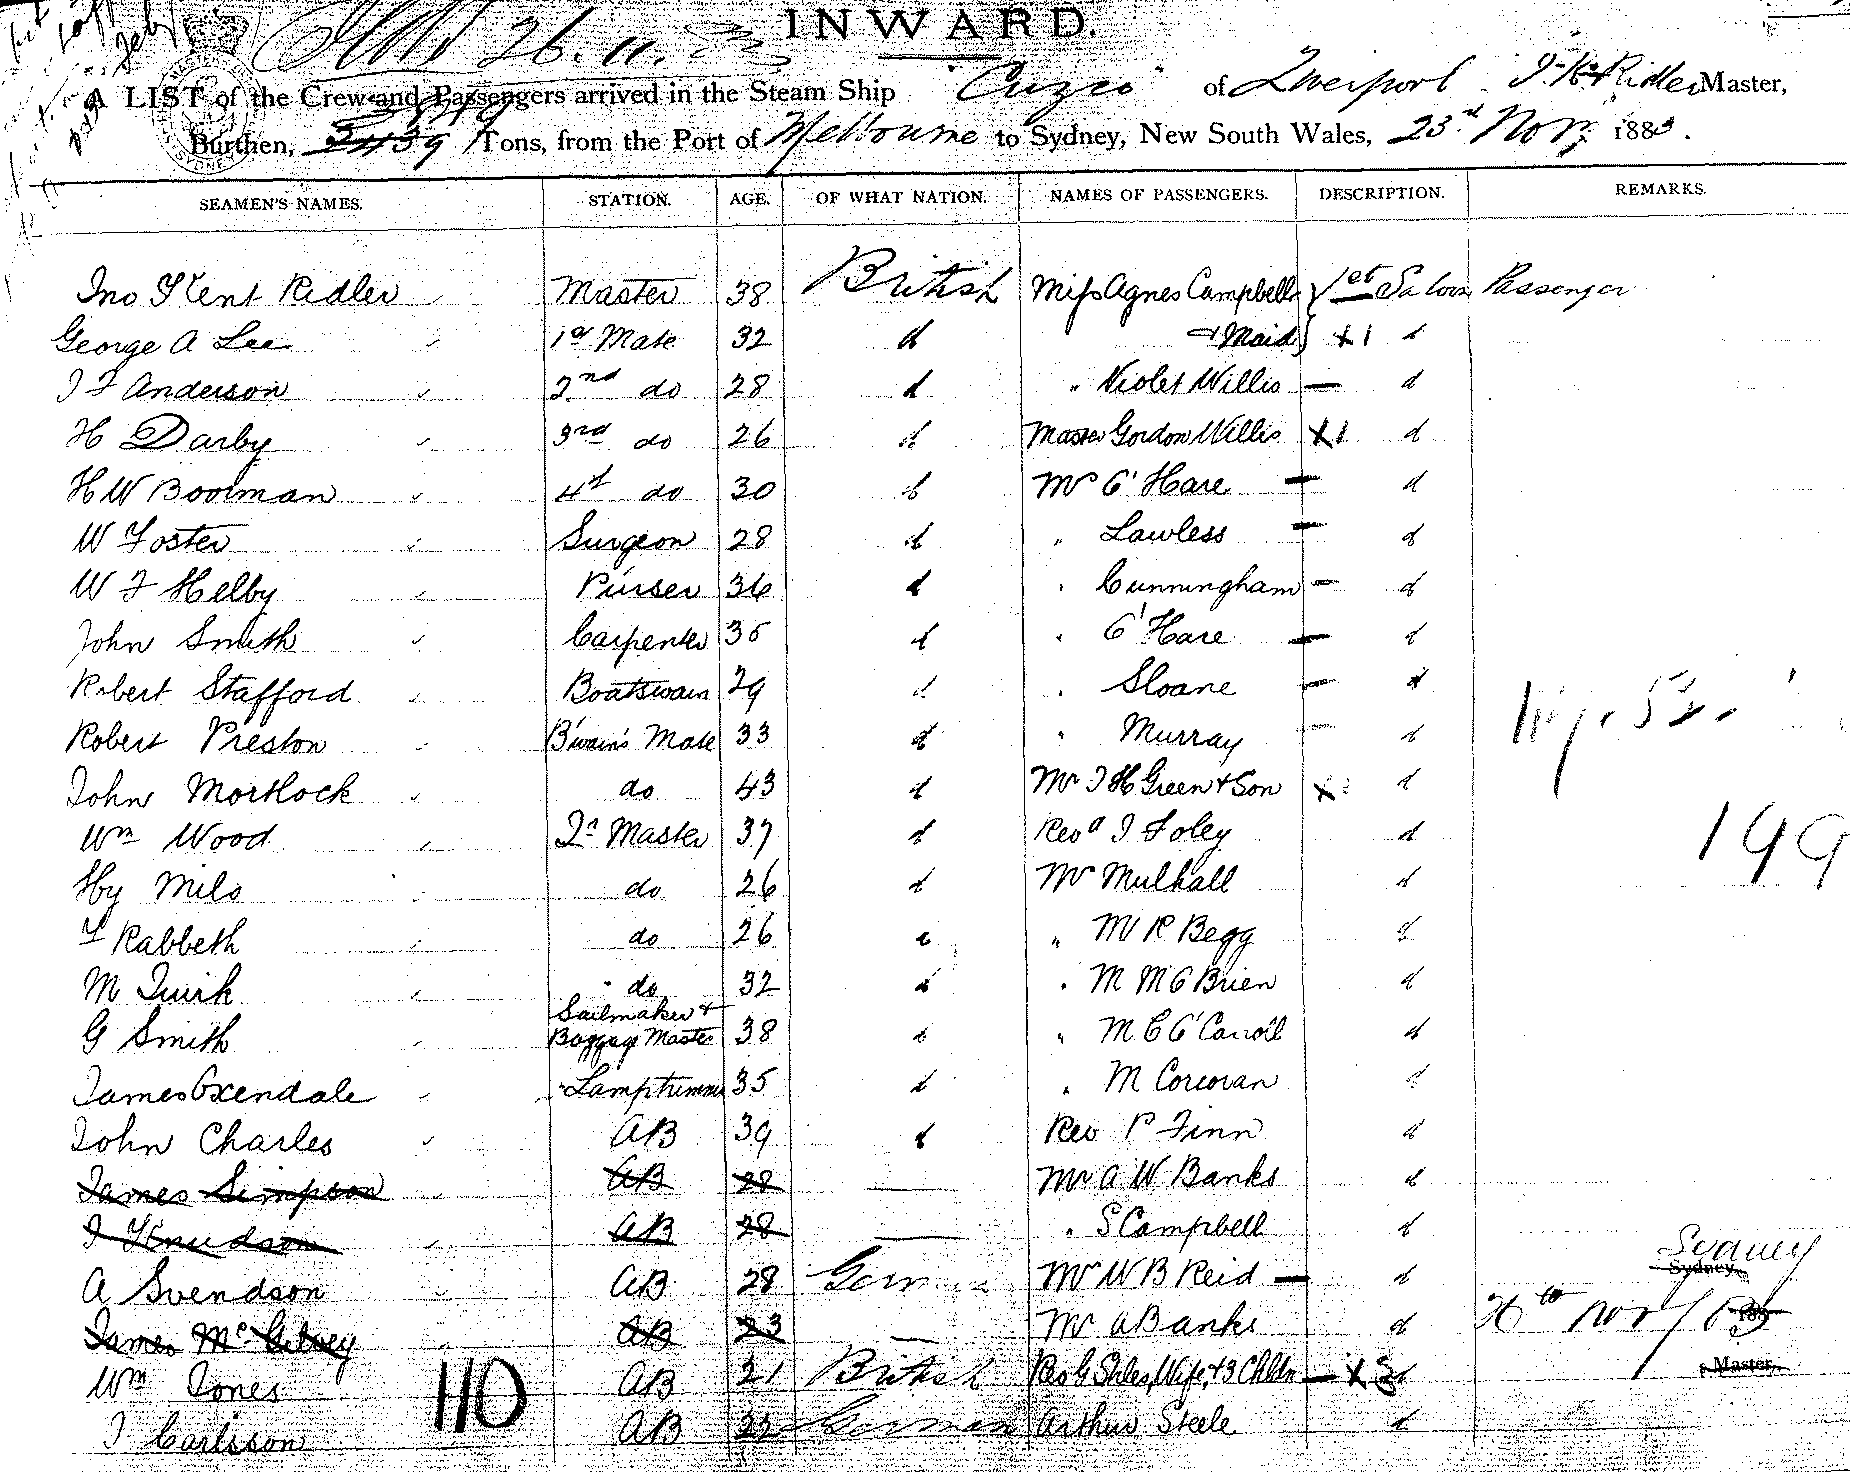 INWARD.
26. 11.
A LIST of the Crew and Passengers arrived in the Steam Ship "Cuzco" of Liverpool J. K. Ridler Master,
Burthen, 3439 Tons, from the Port of Melbourne to Sydney, New South Wales, 23rd Nov 1883.
SEAMEN'S NAMES. STATION. AGE. OF WHAT NATION. NAMES OF PASSENGERS. DESCRIPTION. REMARKS.
Jno Kent Ridler Master 38 British Miss Agnes Campbell 1st Saloon Passenger
George A Lee 1st Mate 32 d + Maid x1 d
J F Anderson 2nd do 28 d " Violet Willis — d
H Darby 3rd do 26 d Master Gordon Willis x1 d
H W Boolman 4th do 30 d Mrs O'Hare — d
W Foster Surgeon 28 d " Lawless — d
W F Helby Purser 36 d " Cunningham — d
John Smith Carpenter 35 d " O'Hare — d
Robert Stafford Boatswain 29 d " Sloane — d
Robert Preston B'wain's Mate 33 d " Murray — d
John Mortlock do 43 d Mr J H Green + Son x d
Wm Wood Qr Master 37 d Revd J Foley d
149
Hy Mils do 26 d Mr Mulhall d
F Rabbeth do 26 d " M R Begg d
M Quirk do 32 d " M M O'Brien d
G Smith Sailmaker + Baggage Master 38 d " M C O'Carroll d
James Oxendale Lamptrimmer 35 d " M Corcoran d
John Charles AB 39 d Rev P Finn d
James Simpson AB 28 — Mr A W Banks d
J Knudson AB 28 — " S Campbell d
Sydney
A Svendson AB 28 German Mr W B Reid — d
Sydney,
James McGilvey AB 23 — Mr A Banks d
Nov /83
Wm Jones AB 21 British Rev G Stiles, Wife, + 3 Chldn — x 3 d
Master.
110
J Carlsson AB 32 German Arthur Steele d